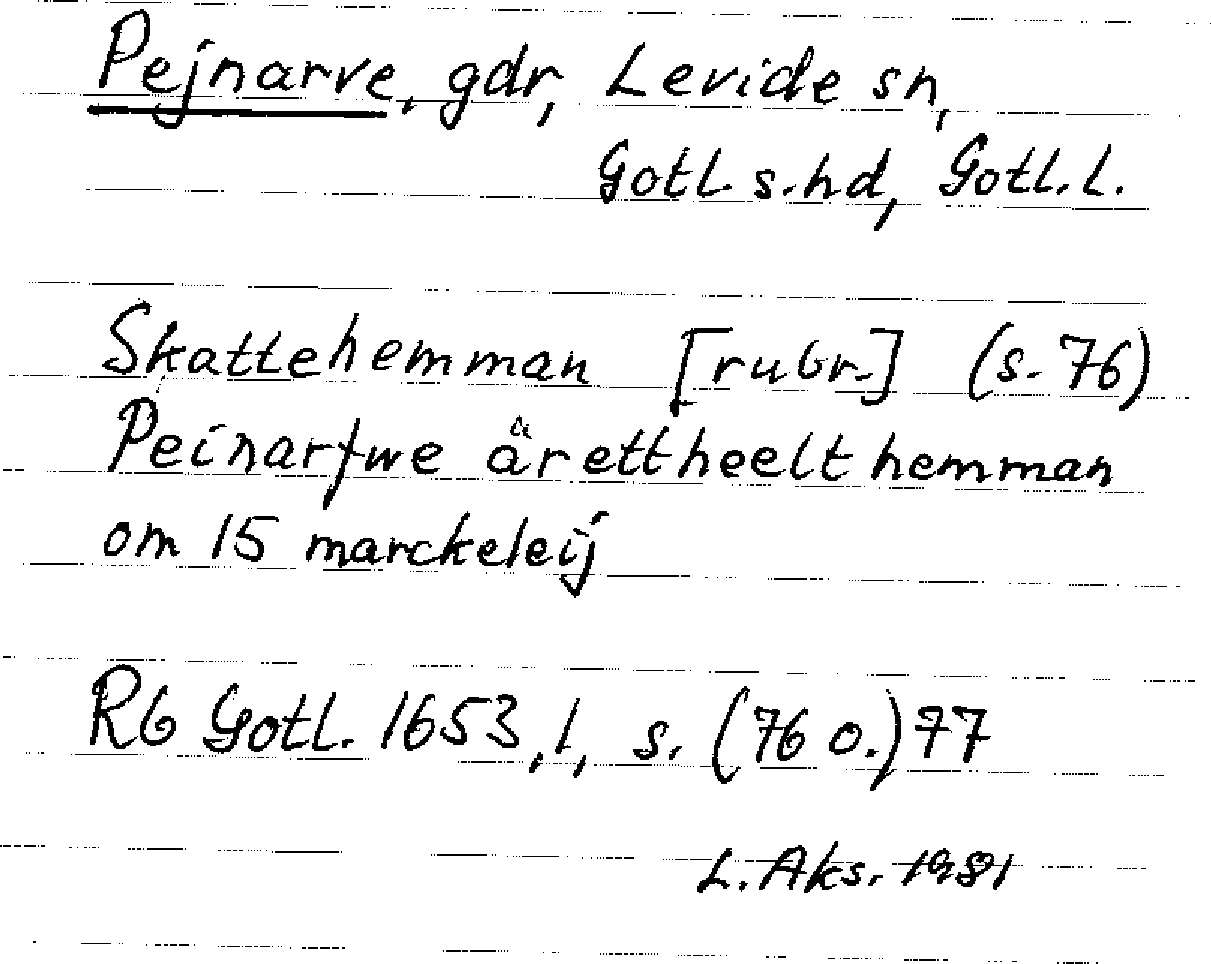 Pejnarve, gdr, Levide sn,
Gotl. s. hd, Gotl. l.
Skattehemman [rubr.] (s. 76)
Peinarfwe är ett heelt hemman
om 15 marckeleij
Rb Gotl. 1653, 1, s. (76 o.) 77
L. Aks. 1981